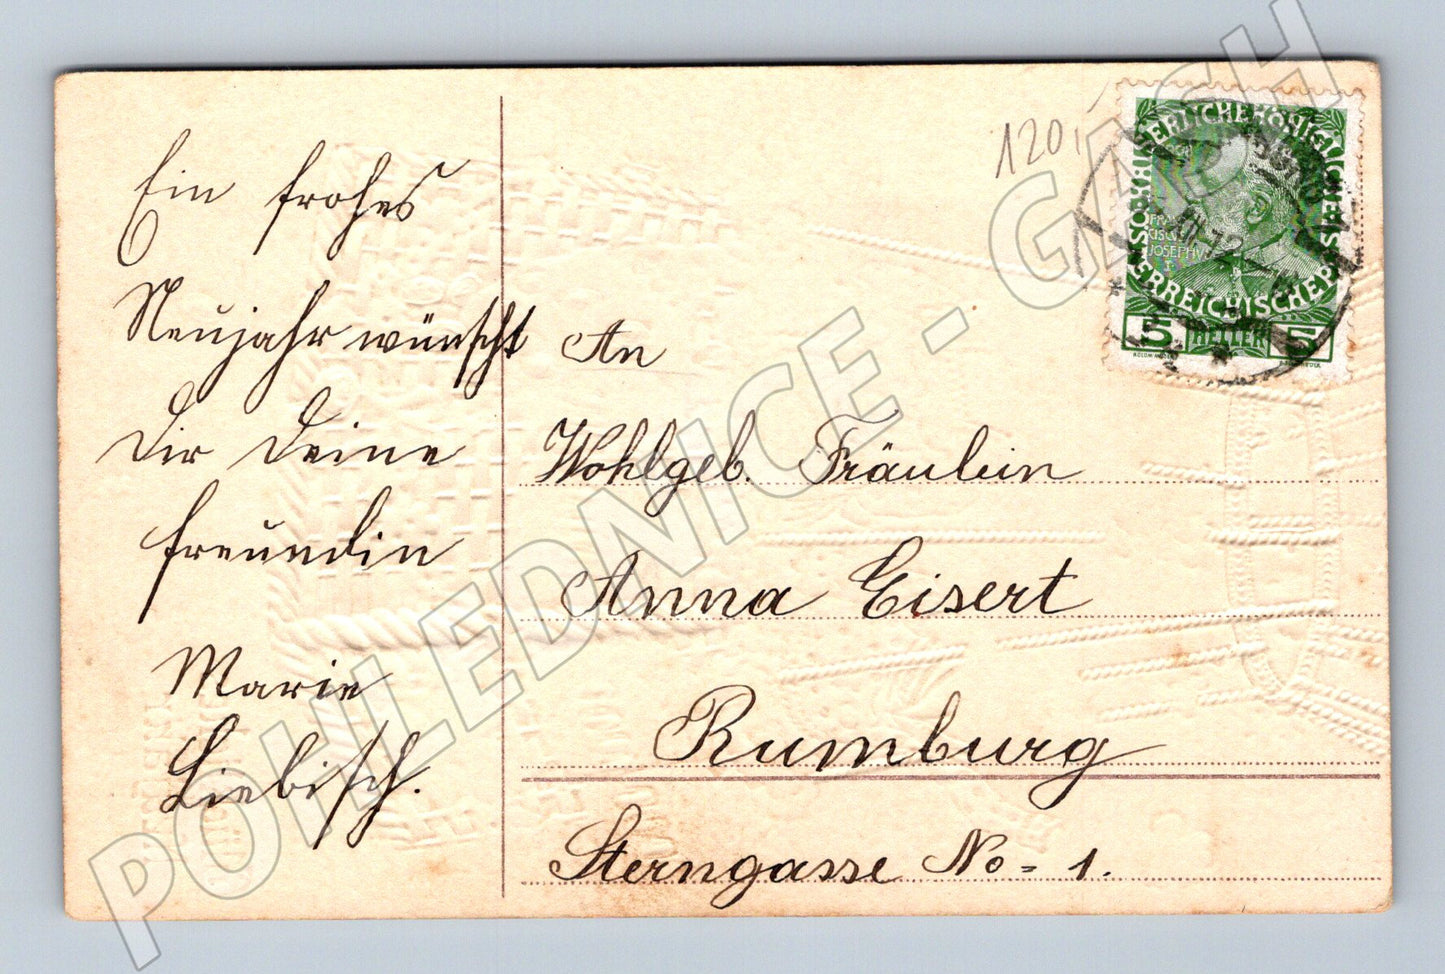 Ein frohes
Neujahr wünscht
Dir Deine
Freundin
Marie
Liebisch.
120,-
An
Wohlgeb. Fräulein
Anna Eisert
Rumburg
Sterngasse No = 1.
KAISERLICHE KÖNIGLICHE
ÖSTERREICHISCHE POST
FRAN
CISCVS
JOSEPHVS I
5 HELLER 5
POHLEDNICE - GASH